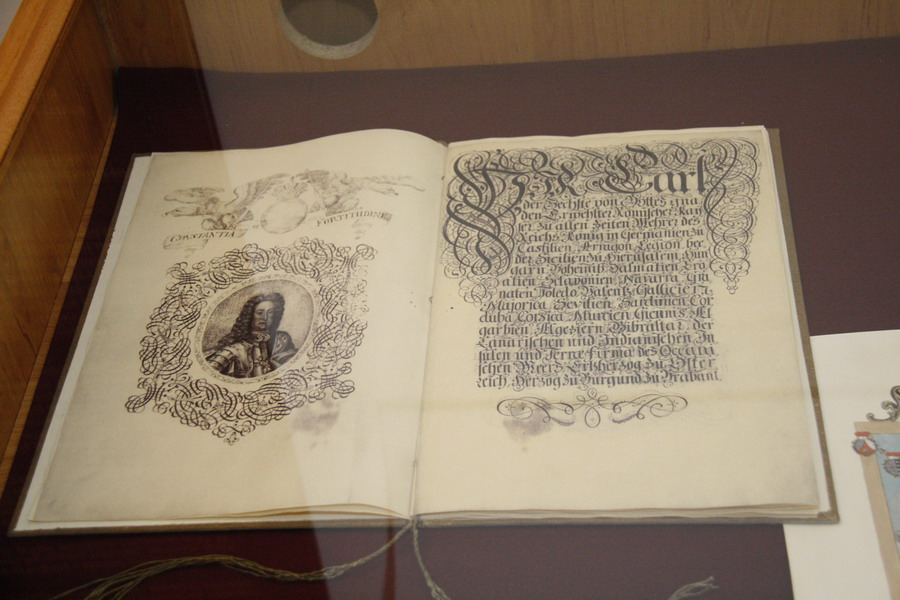 CONSTANTIA et FORTITUDINE
Wir Carl
der Sechste von Gottes gna
den Erwehlter Römischer Kay
ser zu allen Zeiten Mehrer des
Reichs König in Germanien zu
Castilien Arragon Legion bee
der Sicilien zu Hierusalem Hun
garn Boheimb Dalmatien Cro
atien Sclavonien Navarra Gra
naten Toledo Valentz Gallicien
Majorica Sevilien Sardinien Cor
duba Corsica Murcien Giennis Al
garbien Algeziern Gibraltar der
Canarischen und Indianischen In
sulen und Terræ firmæ des Oceani
schen Meers Ertzherzog zu Öster
reich Herzog zu Burgund zu Brabant